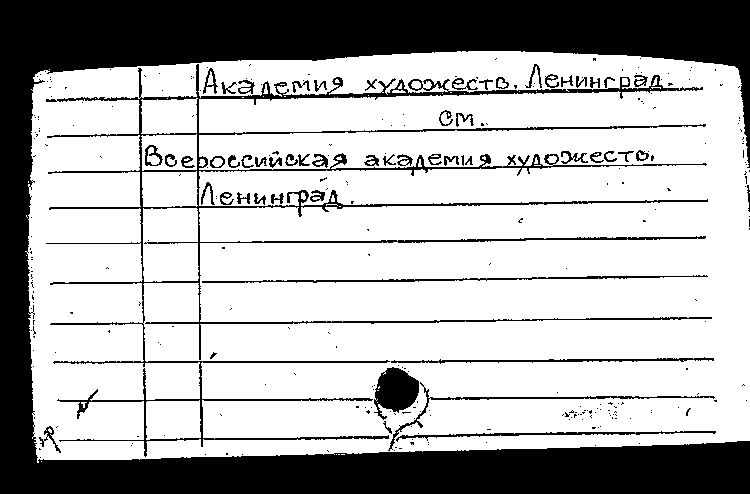 Академия художеств. Ленинград.
см.
Всероссийская академия художеств.
Ленинград.